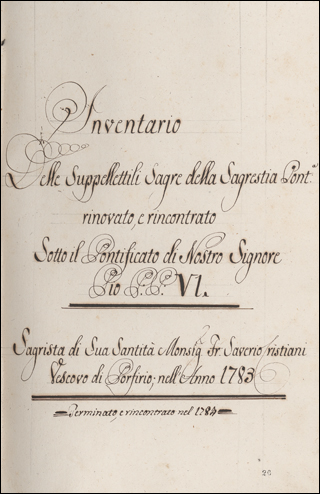 Inventario
Delle Suppellettili Sagre della Sagrestia Pont.ª
rinovato, e rincontrato
Sotto il Pontificato di Nostro Signore
Pio P.P. VI.
Sagrista di Sua Santità Monsig. Fr. Saverio Cristiani
Vescovo di Porfirio; nell'Anno 1783
Terminato, e rincontrato nel 1784